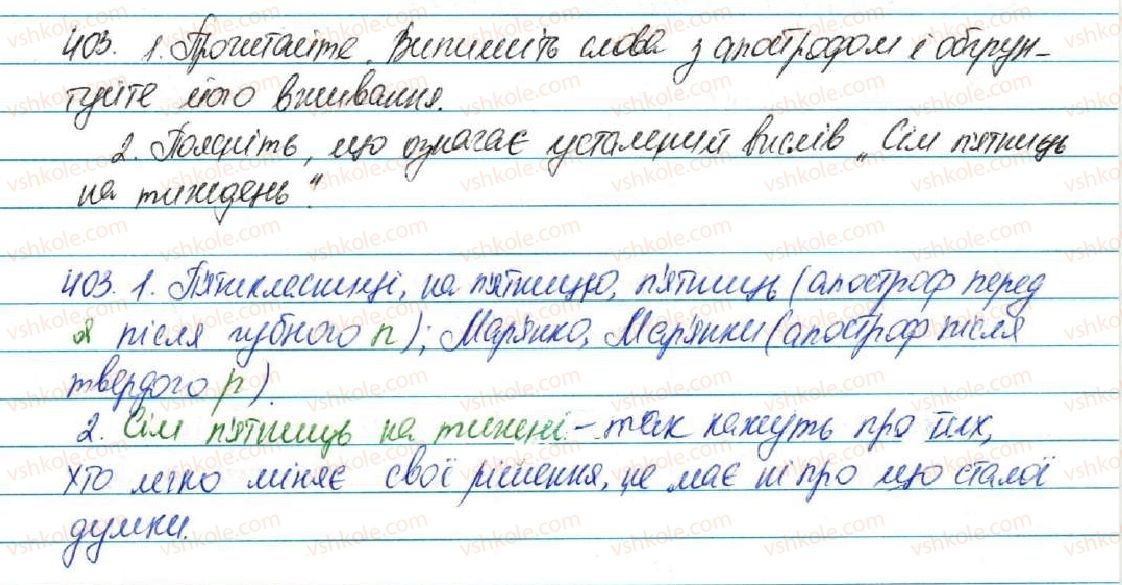 403. 1. Прочитайте. Випишіть слова з апострофом і обґрун-
туйте його вживання.
2. Поясніть, що означає усталений вислів „Сім п'ятниць
на тиждень".
403. 1. П'ятикласниці, на п'ятницю, п'ятниць (апостроф перед
я після губного п); Мар'янко, Мар'янки (апостроф після
твердого р).
2. Сім п'ятниць на тижні – так кажуть про тих,
хто легко міняє свої рішення, не має ні про що сталої
думки.